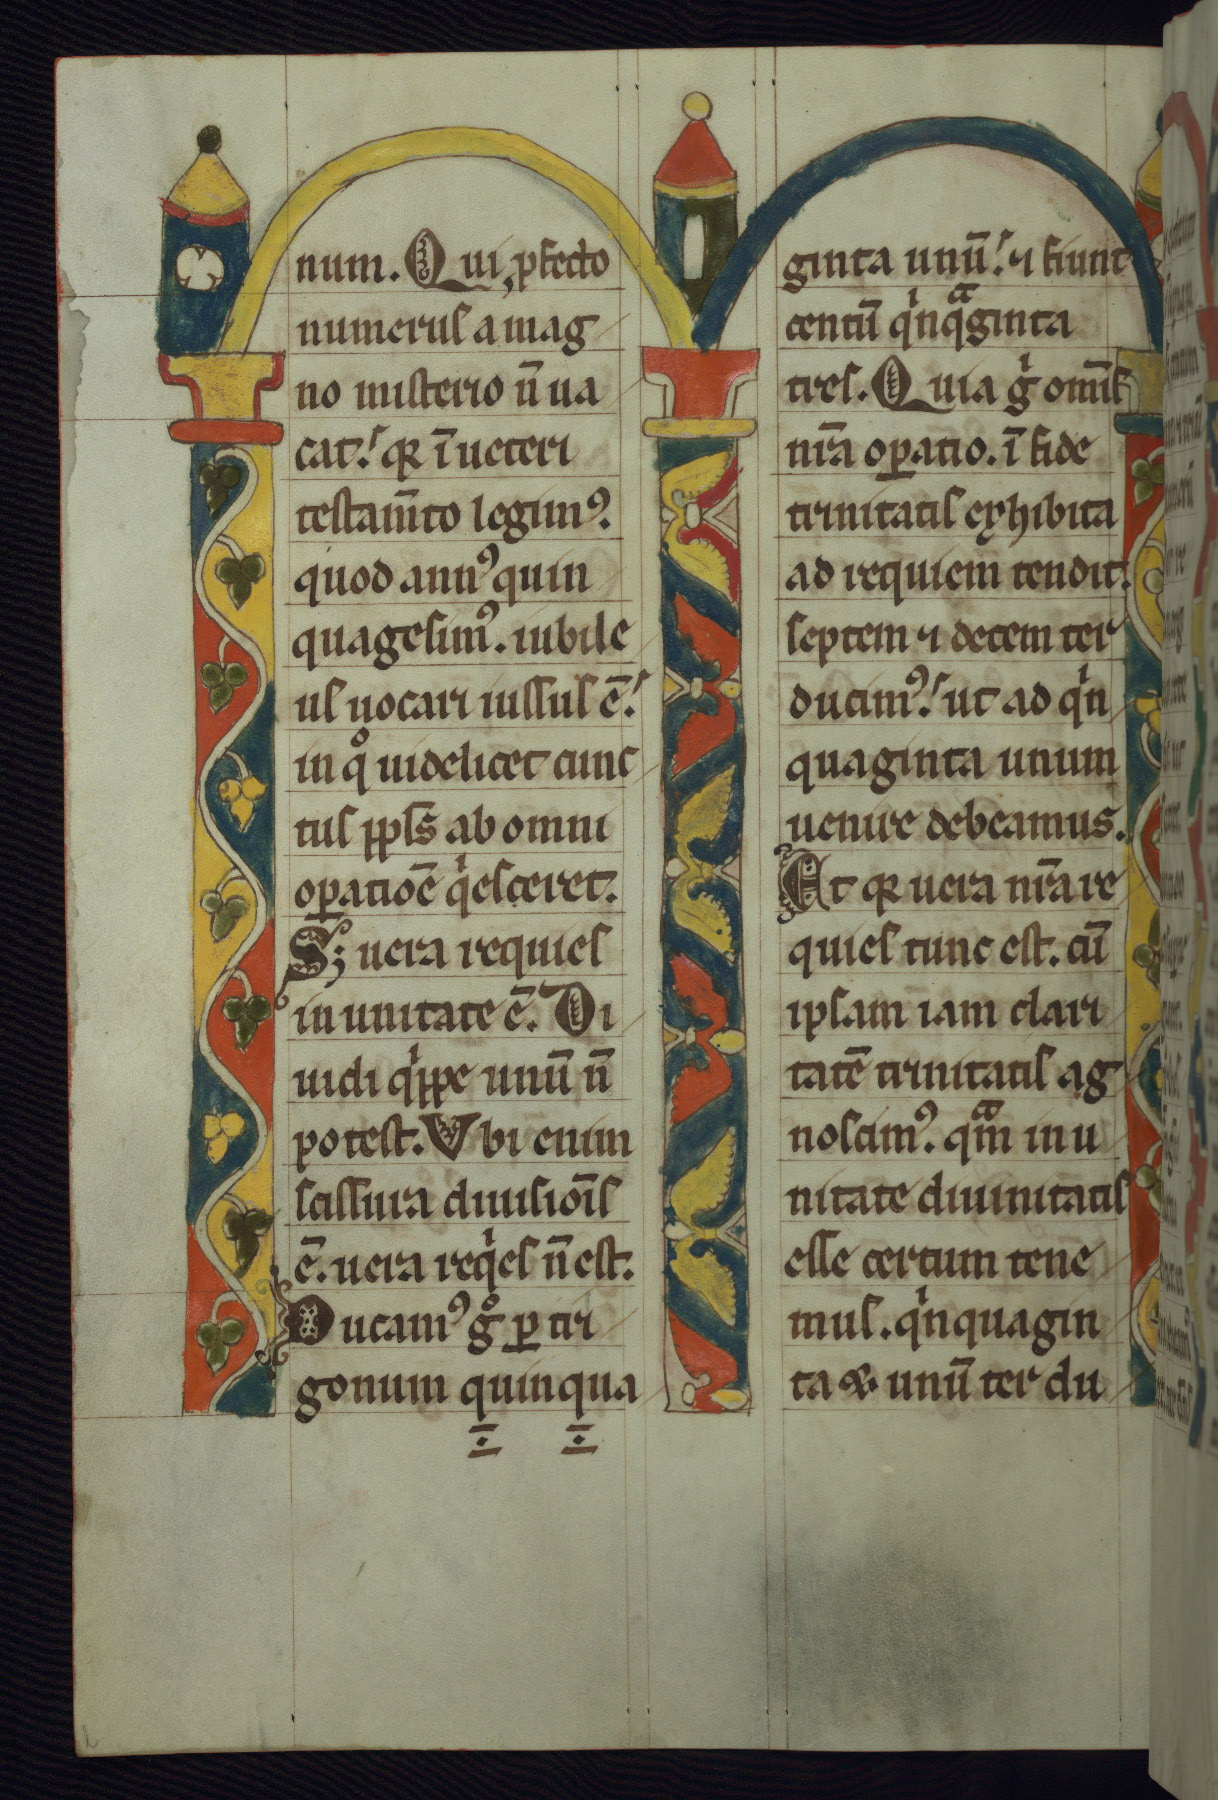 num. Qui, ꝓfecto
numerus a mag
no misterio ñ ua
cat. qꝛ ī ueteri
testam̄to legimꝰ.
quod annꝰ quin
quagesimꝰ. iubile
us uocari iussus ē.
in qͦ uidelicet cunc
tus ppl̄s ab omni
oꝑatiōe qͥesceret.
S; uera requies
in unitate ē. Di
uidi qͥppe unū ñ
potest. Vbi enim
scissura diuisiōis
ē. uera reqͥes ñ est.
Ducamꝰ gͦ ꝑ tri
gonum quinqua
ginta unū. ⁊ fiunt
centū qͥnqͣginta
tres. Quia gͥ omīs
nr̄a oꝑatio. ī fide
trinitatis exhibita
ad requiem tendit.
septem ⁊ decem ter
ducimꝰ. ut ad qͥn
quaginta unum
uenire debeamus.
Et qꝛ uera nr̄a re
quies tunc est. cū
ipsam iam clari
tatē trinitatis ag
noscimꝰ. qm̄ͣ in u
nitate diuinitatis
esse certum tene
mus. qͥnquagin
ta ⁊ unū ter du